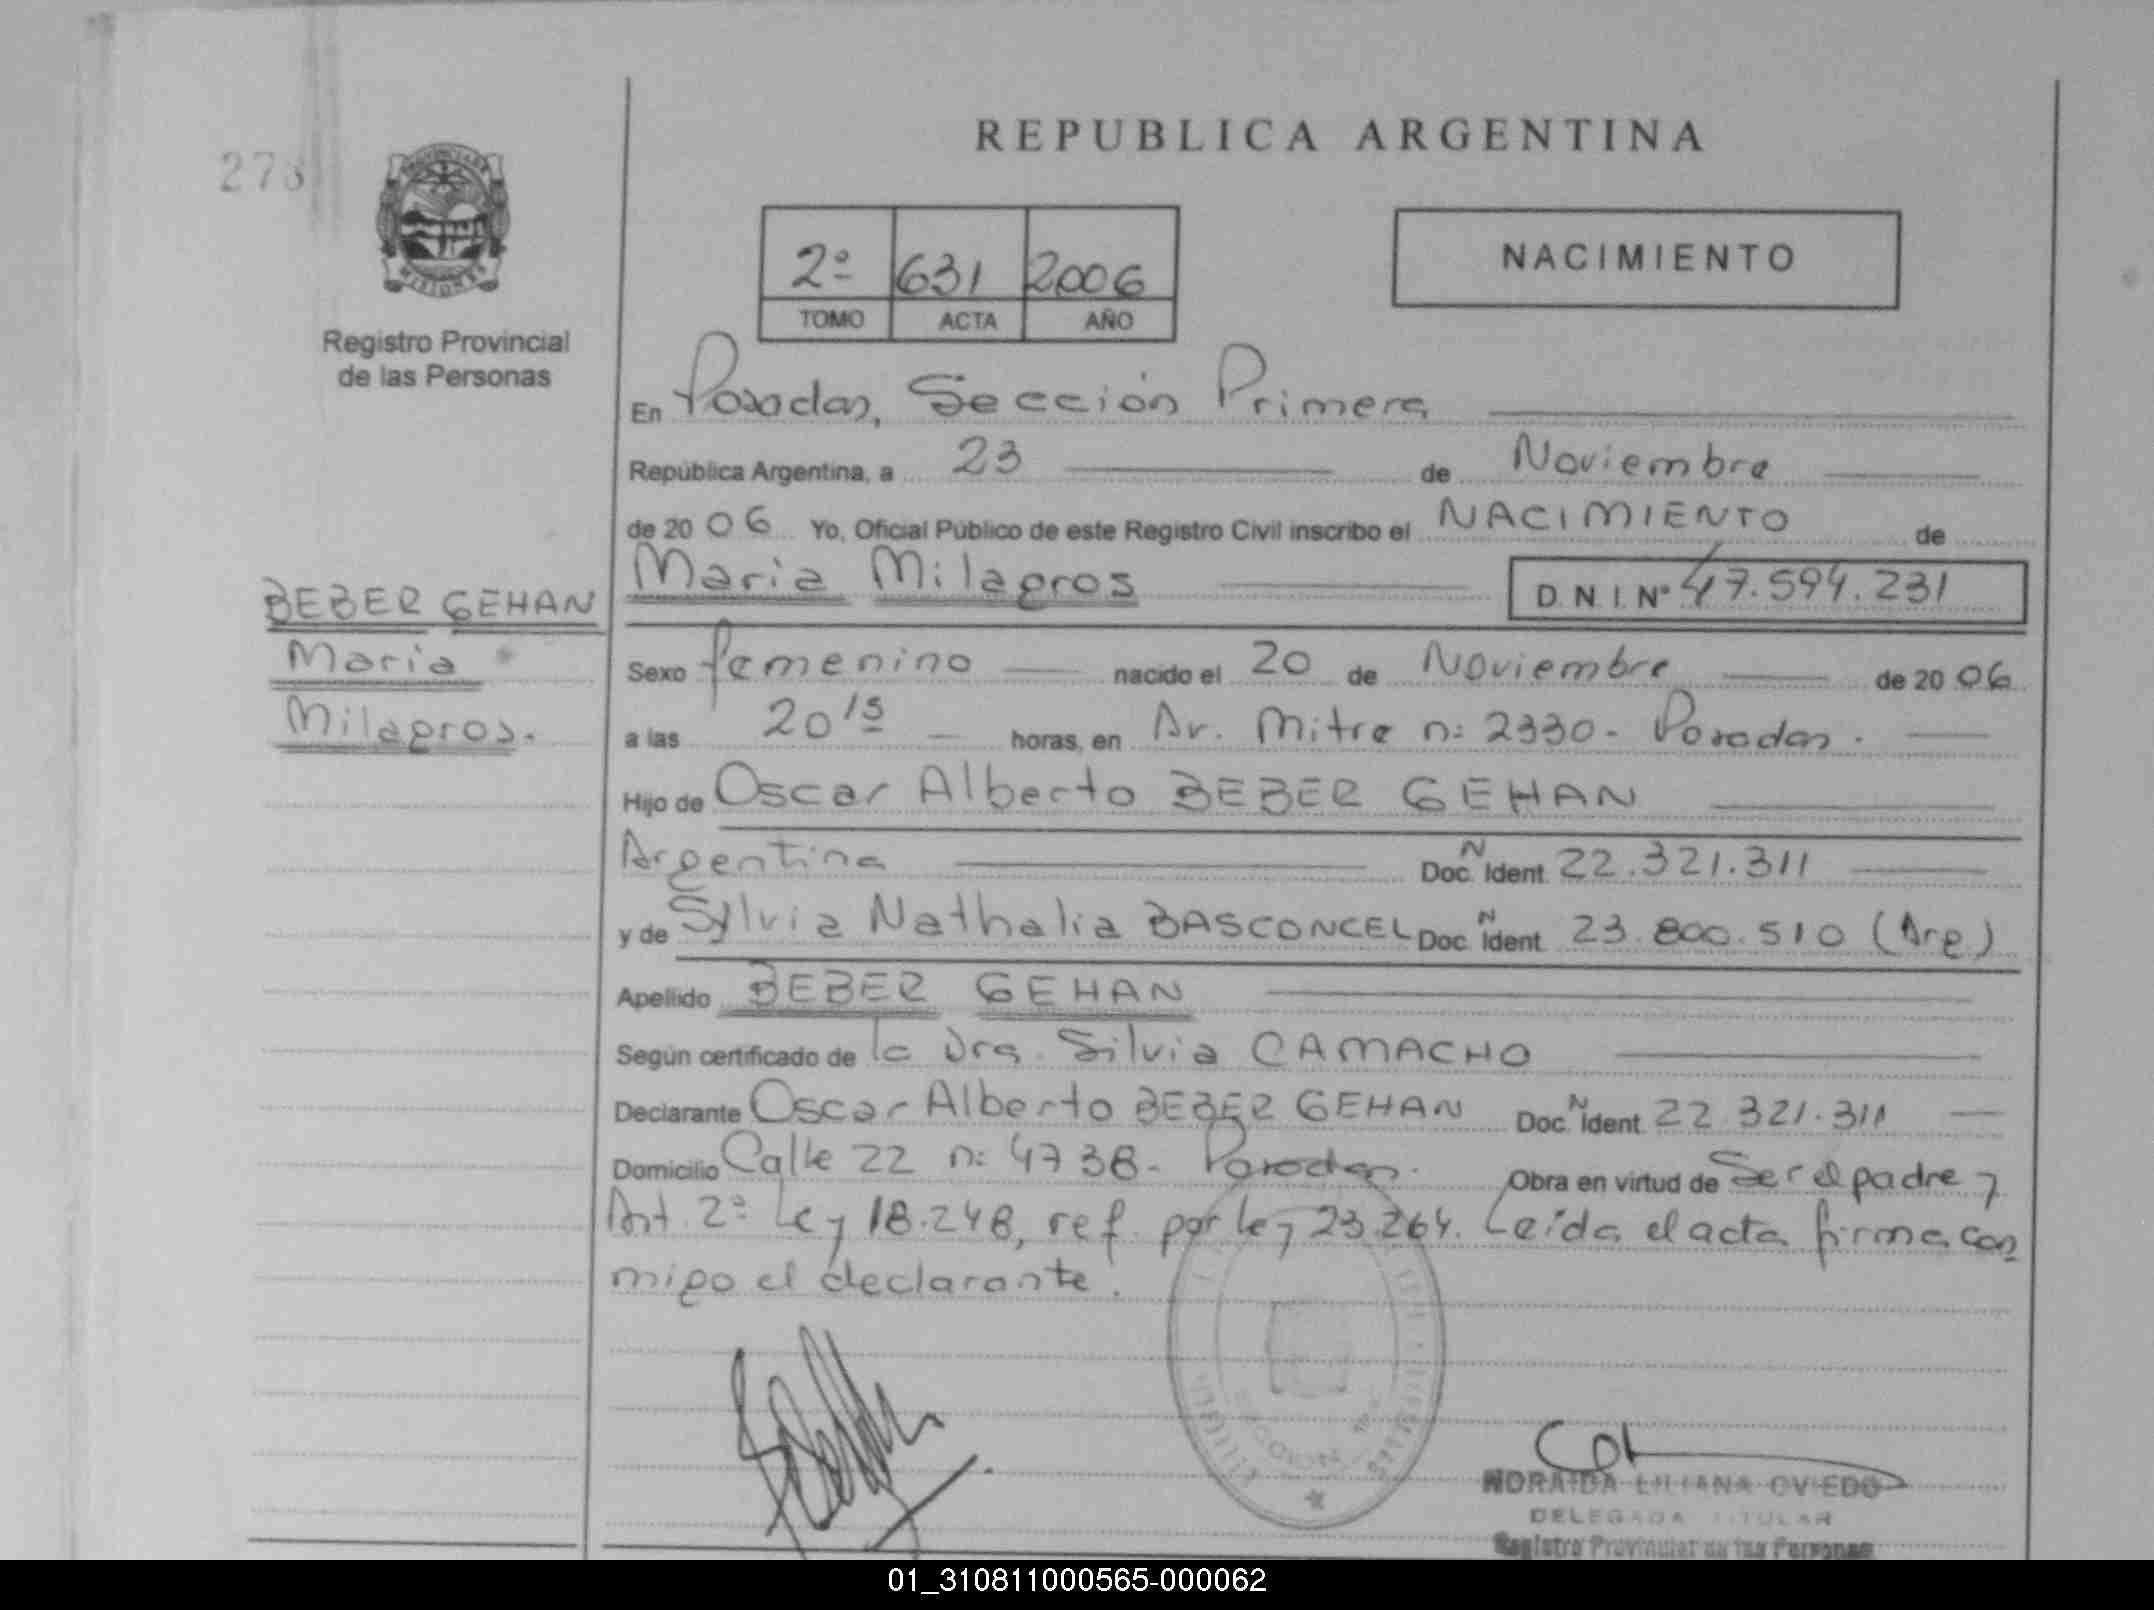 REPUBLICA ARGENTINA
NACIMIENTO
2º 631 2006
TOMO ACTA AÑO
Registro Provincial
de las Personas
En Posadas, Sección Primera
República Argentina, a 23 de Noviembre
de 2006 Yo, Oficial Público de este Registro Civil inscribo el NACIMIENTO de
Maria Milagros D.N.I. Nº 47.594.231
BEBER GEHAN
Maria
Milagros.
Sexo femenino nacido el 20 de Noviembre de 2006
a las 20 15 horas, en Av. Mitre nº 2330 - Posadas.
Hijo de Oscar Alberto BEBER GEHAN
Argentina Doc. N Ident. 22.321.311
y de Sylvia Nathalia BASCONCEL Doc. N Ident. 23.800.510 (Arg)
Apellido BEBER GEHAN
Según certificado de la Dra. Silvia CAMACHO
Declarante Oscar Alberto BEBER GEHAN Doc. N Ident. 22 321.311
Domicilio Calle 22 nº 4738 - Posadas. Obra en virtud de Ser el padre y
Art. 2º Ley 18.248, ref. por ley 23.264. Leída el acta firma con
migo el declarante.
NORAIDA LILIANA OVIEDO
DELEGADA TITULAR
Registro Provincial de las Personas
01_310811000565-000062